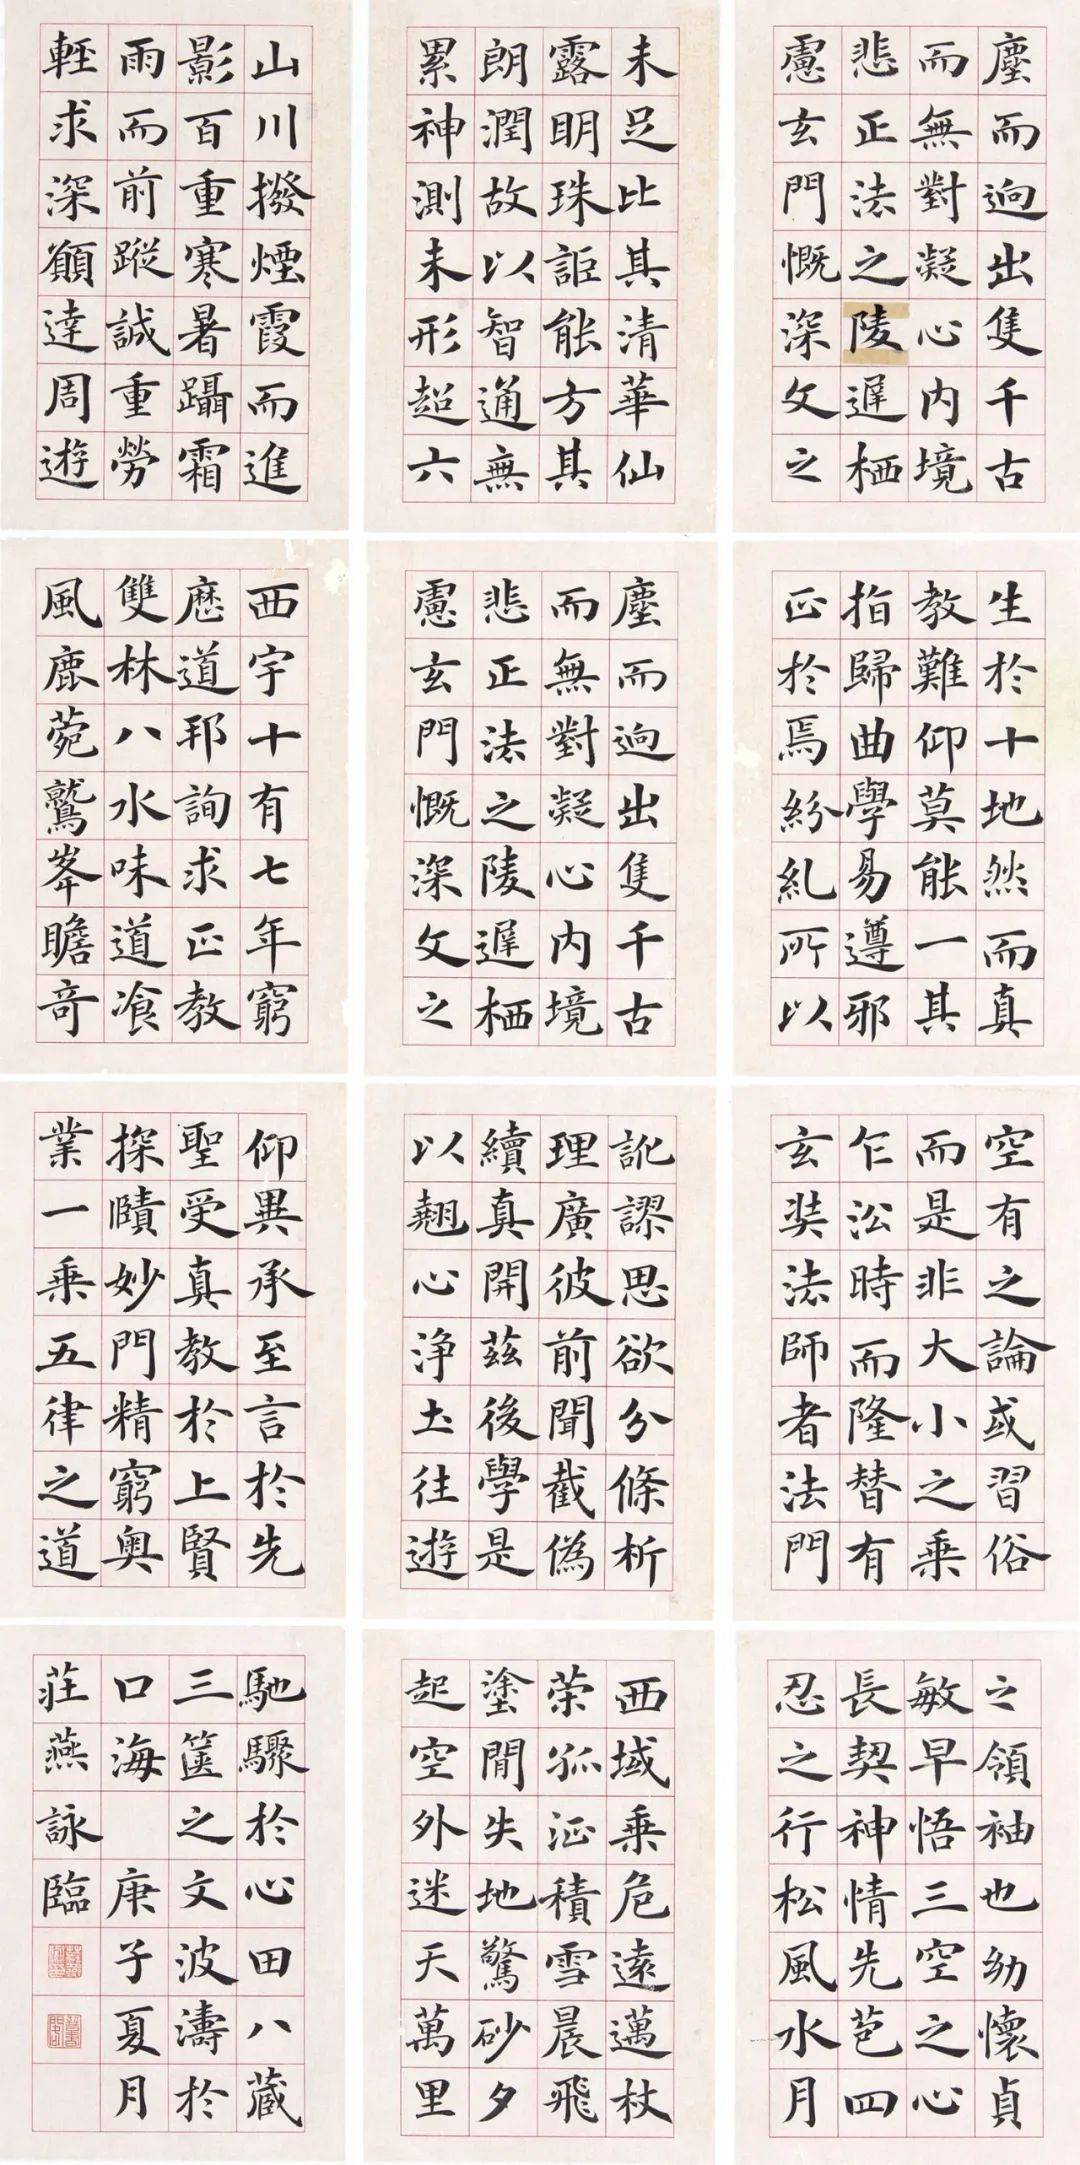 塵而迥出隻千古
而無對凝心內境
悲正法之陵遲栖
慮玄門慨深文之
未足比其清華仙
露明珠詎能方其
朗潤故以智通無
累神測未形超六
山川撥煙霞而進
影百重寒暑躡霜
雨而前蹤誠重勞
輕求深願達周遊
生於十地然而真
教難仰莫能一其
指歸曲學易遵邪
正於焉紛糺所以
塵而迥出隻千古
而無對凝心內境
悲正法之陵遲栖
慮玄門慨深文之
西宇十有七年窮
歷道邦詢求正教
雙林八水味道飡
風鹿菀鷲峯瞻奇
空有之論或習俗
而是非大小之乘
乍沿時而隆替有
玄奘法師者法門
訛謬思欲分條析
理廣彼前聞截偽
續真開茲後學是
以翹心淨土往遊
仰異承至言於先
聖受真教於上賢
探賾妙門精窮奧
業一乘五律之道
之領袖也幼懷貞
敏早悟三空之心
長契神情先苞四
忍之行松風水月
西域乘危遠邁杖
榮孤征積雪晨飛
塗閒失地驚砂夕
起空外迷天萬里
馳驟於心田八藏
三篋之文波濤於
口海 庚子夏月
莊燕詠臨